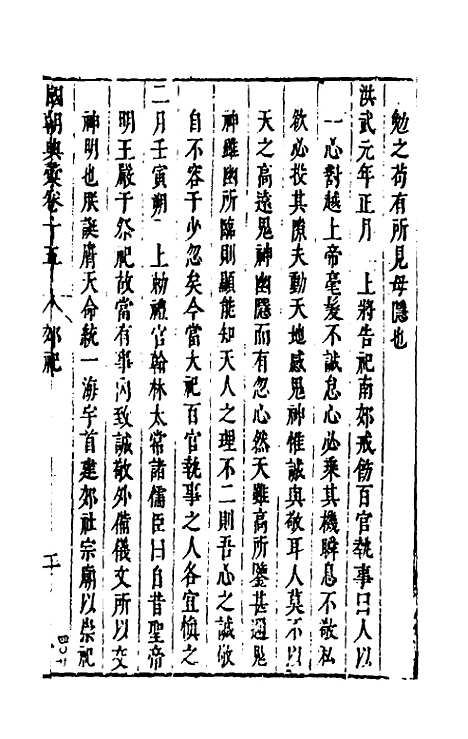 勉之苟有所見毋隱也
洪武元年正月　上將告祀南郊戒飭百官執事曰人以
一心對越上帝毫髮不誠怠心必乘其機瞬息不敬私
欲必投其隙夫動天地感鬼神惟誠與敬耳人莫不以
天之高遠鬼神幽隱而有忽心然天雖高所鑒甚邇鬼
神雖幽所臨則顯能知天人之理不二則吾心之誠敬
自不容于少忽矣今當大祀百官執事之人各宜慎之
二月壬寅朔　上勅禮官翰林太常諸儒臣曰自昔聖帝
明王嚴于祭祀故當有事內致誠敬外備儀文所以交
神明也朕誕膺天命統一海宇首建郊社宗廟以崇祀
國朝典彙卷十五　郊祀